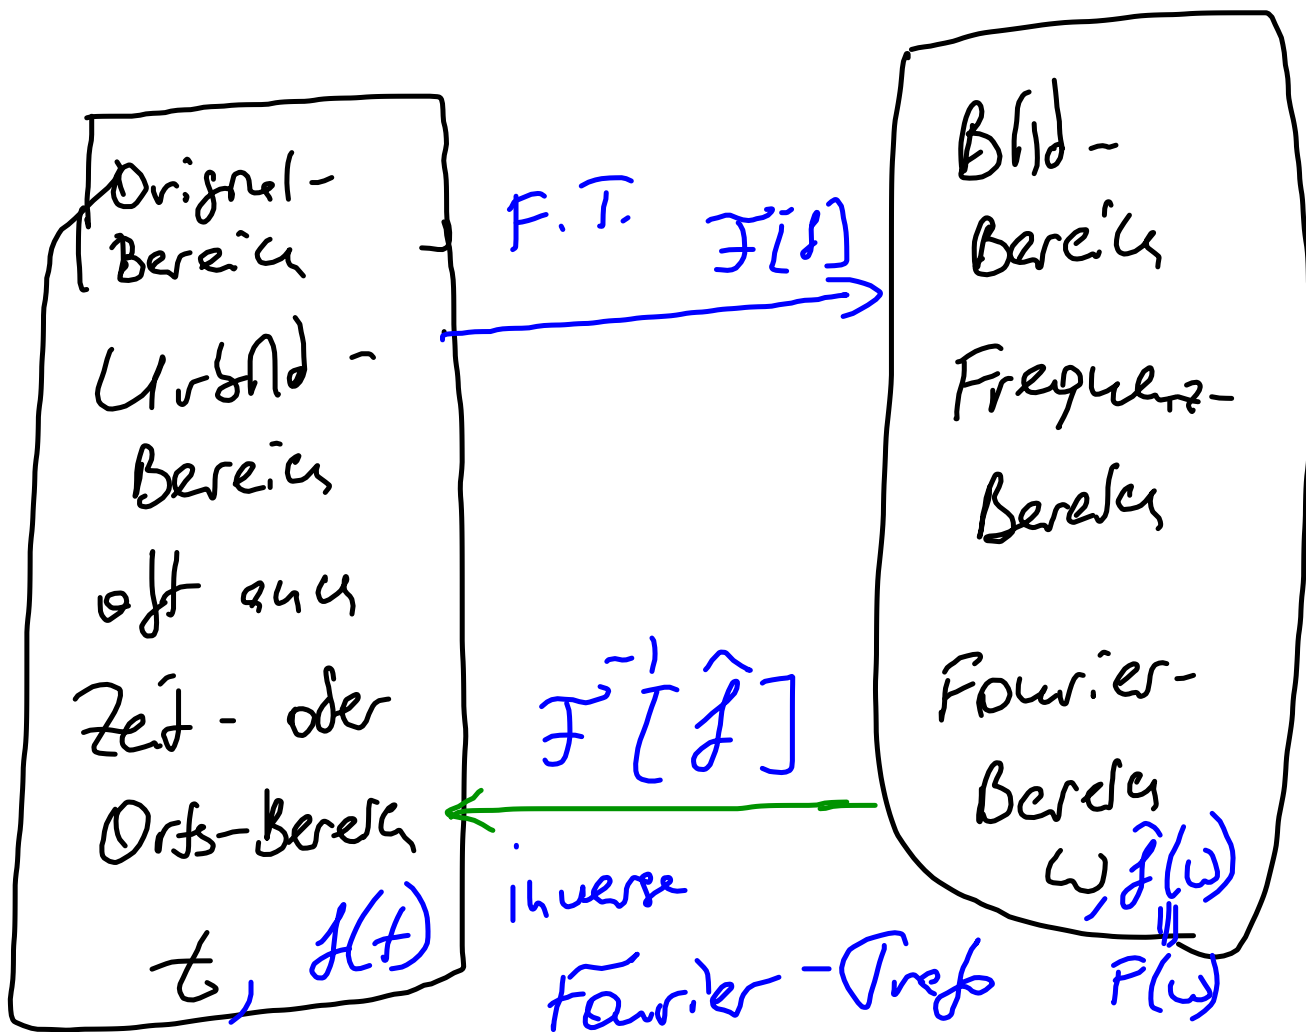 Original-
Bereich
Urbild-
Bereich
oft auch
Zeit- oder
Orts-Bereich
t, f(t)
F.T. F[f]
F⁻¹[f̂]
inverse
Fourier-Trafo
Bild-
Bereich
Frequenz-
Bereich
Fourier-
Bereich
ω, f̂(ω)
=
F(ω)